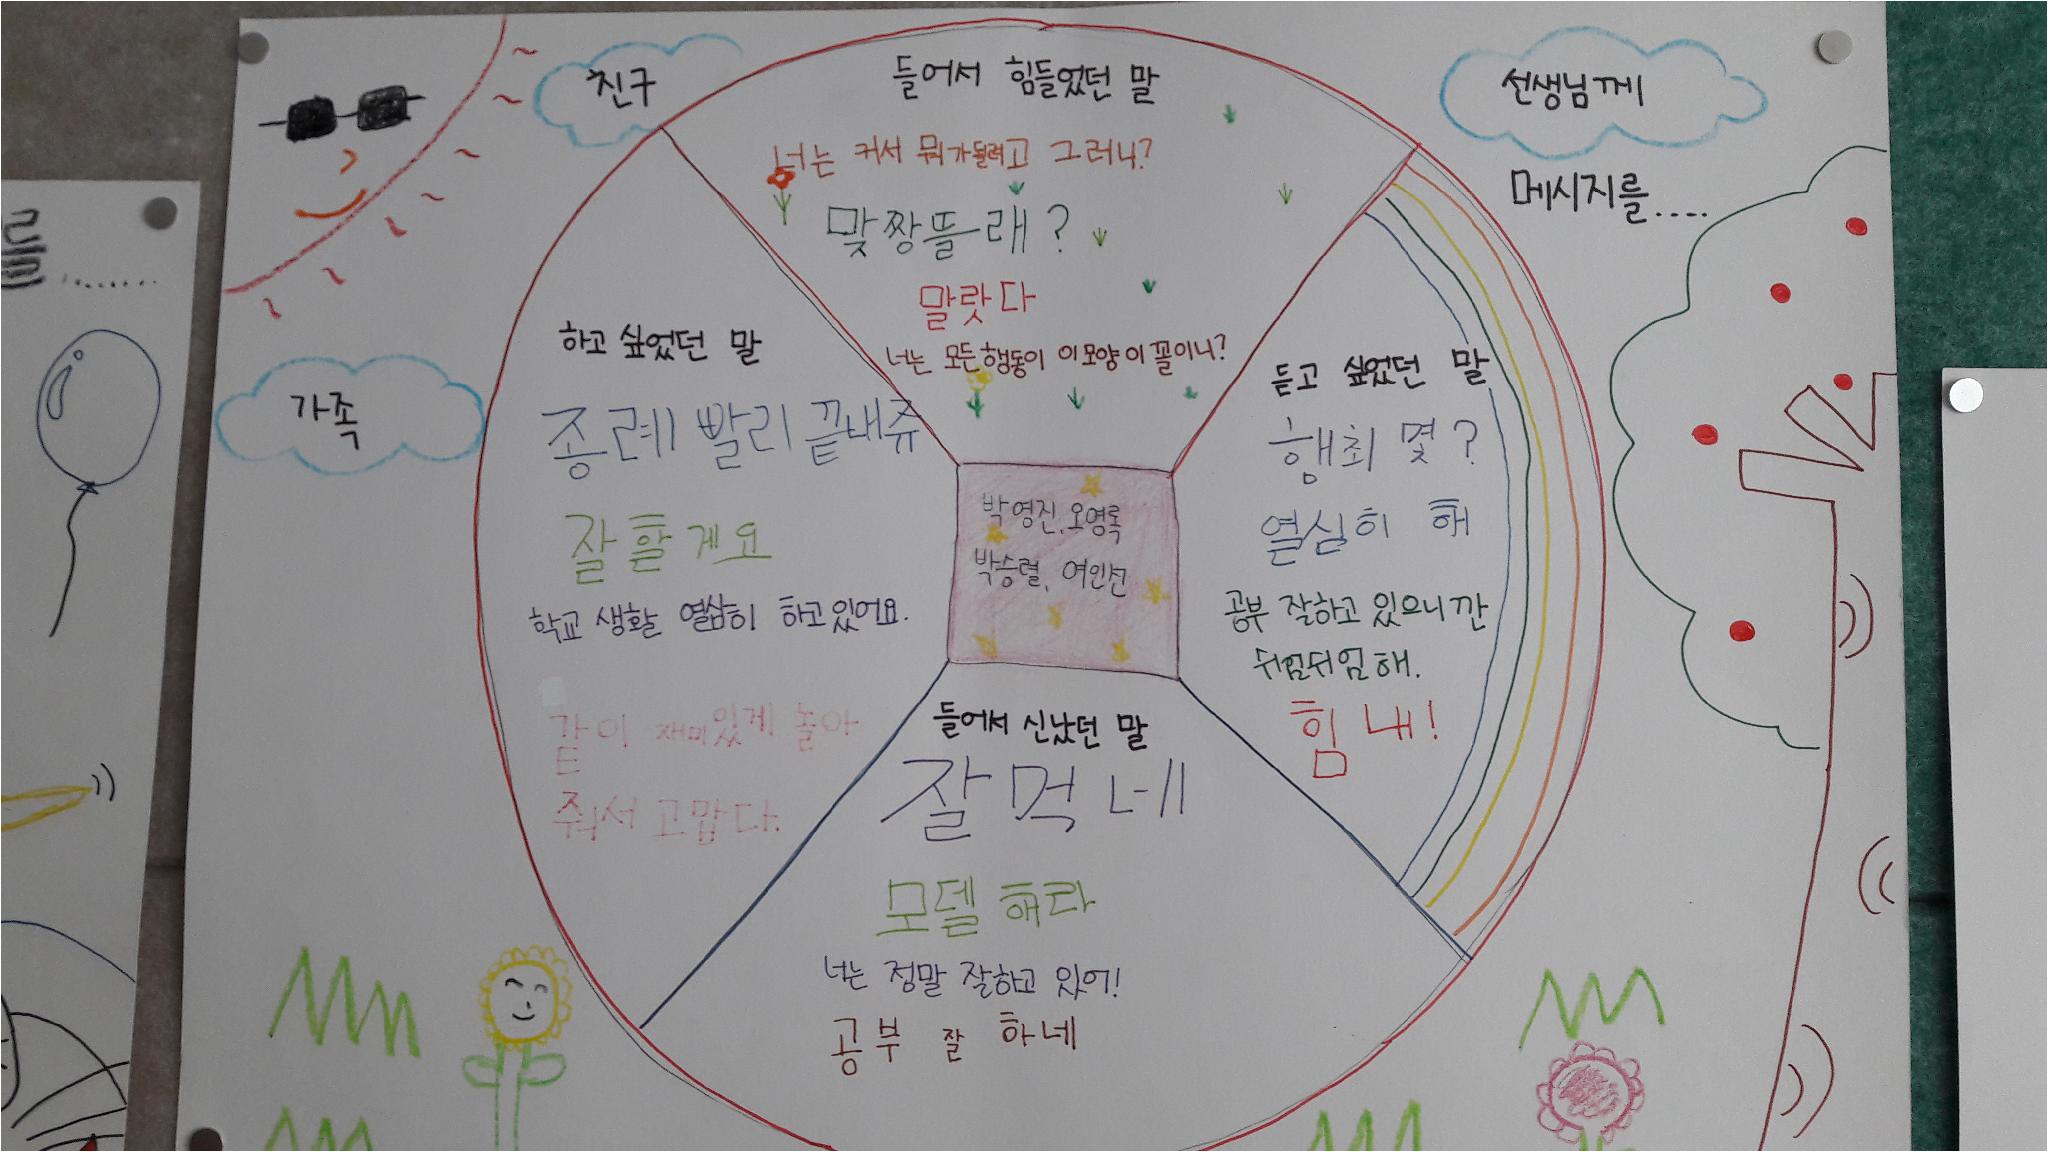 친구
가족
선생님께
메시지를.....
들어서 힘들었던 말
너는 커서 뭐가 될려고 그러니?
맞짱뜰래?
말랏다
너는 모든 행동이 이 모양 이 꼴이니?
하고 싶었던 말
종례 빨리 끝내쥬
잘 할게요
학교 생활 열심히 하고 있어요.
같이 재미있게 놀아
줘서 고맙다.
박영진, 오영록
박승렬, 여인선
듣고 싶었던 말
행최 몇?
열심히 해
공부 잘하고 있으니깐
쉬엄쉬엄 해.
힘내!
들어서 신났던 말
잘 먹네
모델 해라
너는 정말 잘하고 있어!
공부 잘 하네
를.......